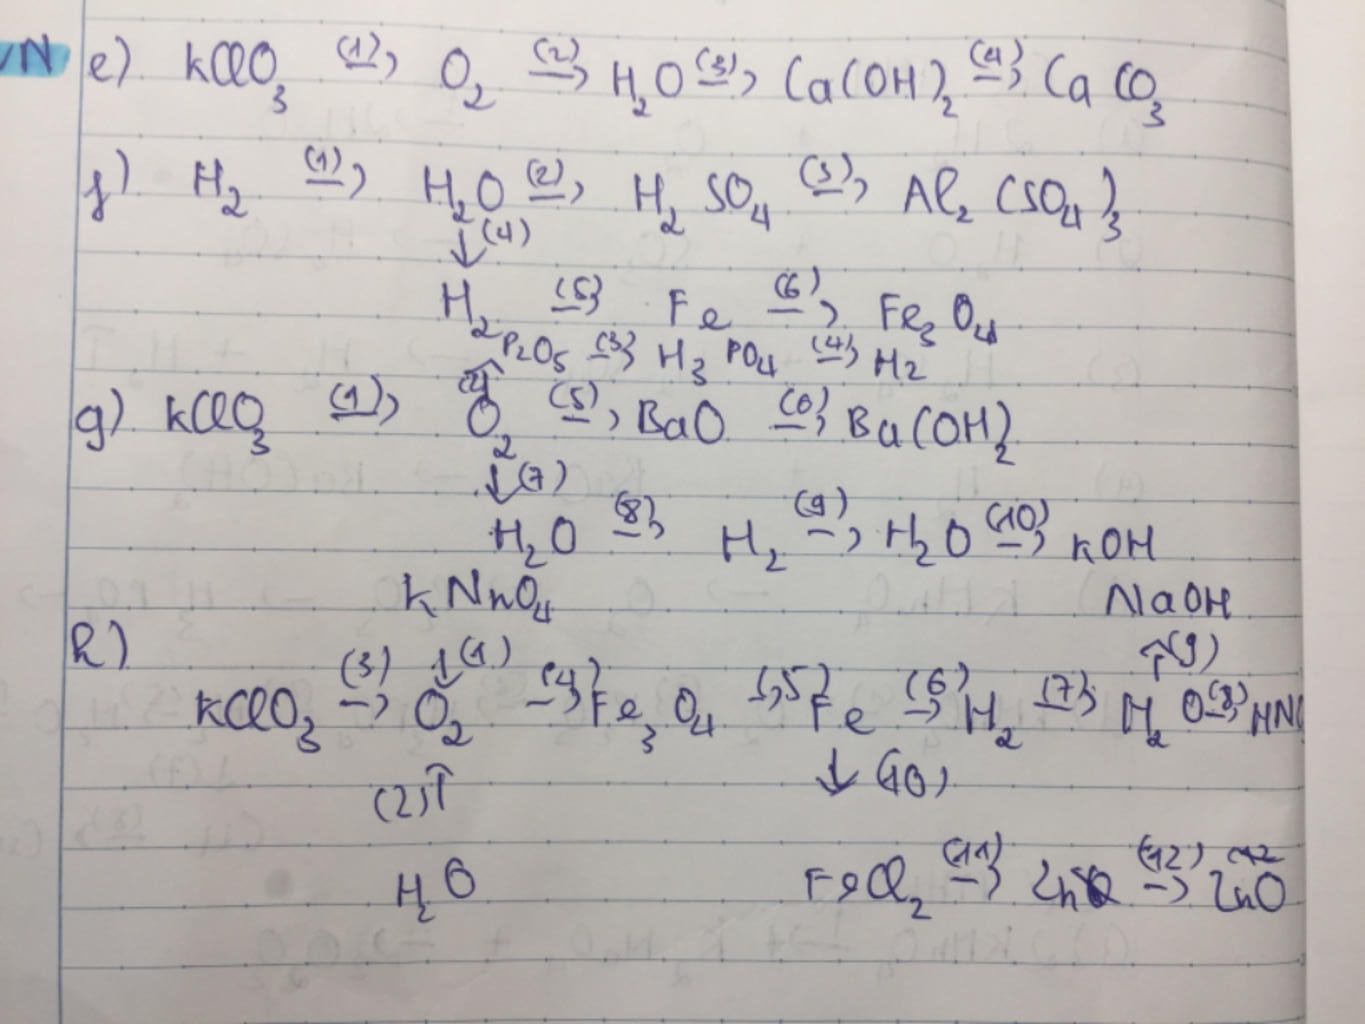 VN e) KClO3 (1)→ O2 (2)→ H2O (3)→ Ca(OH)2 (4)→ CaCO3
f) H2 (1)→ H2O (2)→ H2SO4 (3)→ Al2(SO4)3
↓(4)
H2 (5)→ Fe (6)→ Fe3O4
P2O5 (3)→ H3PO4 (4)→ H2
(2)↑
g) KClO3 (1)→ O2 (5)→ BaO (6)→ Ba(OH)2
↓(7)
H2O (8)→ H2 (9)→ H2O (10)→ KOH
KMnO4 NaOH
h) ↓(1) ↑(9)
KClO3 (3)→ O2 (4)→ Fe3O4 (5)→ Fe (6)→ H2 (7)→ H2O (8)→ HNO
(2)↑ ↓(10)
H2O FeCl2 (11)→ (12)→ ZnO